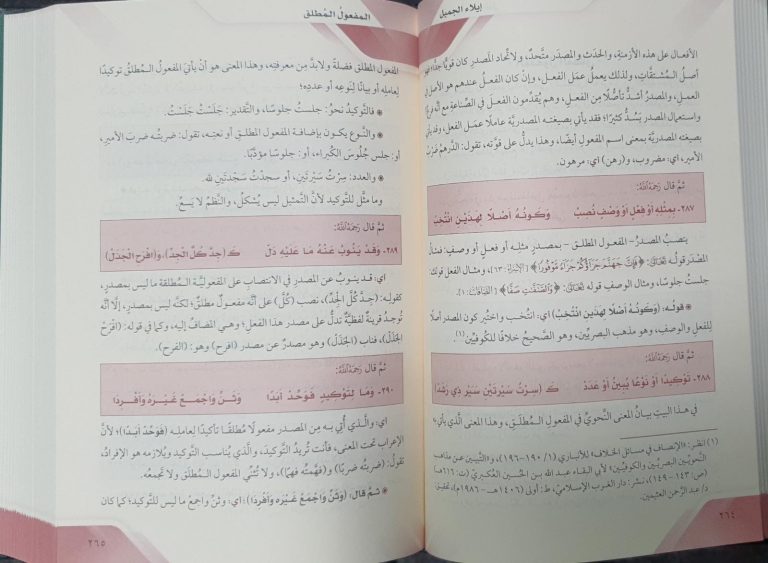 إيلاء الجميل
الأفعال على هذه الأزمنةِ، والحدَث والمصدَر متَّحدٌ، ولاتّحاد المَصدرِ كان قويًّا جدًّا؛ فهو
أصلُ المُشتقَّاتِ، ولذلك يعملُ عمَل الفعلِ، وإن كان الفعلُ عندهم هو الأصل في
العملِ، والمصدرُ أشدُّ تأصُّلًا مِن الفعلِ، وهم يُقدِّمون الفعلَ في الصِّناعةِ مع أنَّه فرعٌ
واستعمال المصدرِ يَشذُّ كثيرًا؛ فقد يأتي بصيغته المصدريَّة عاملًا عملَ الفعلِ، وقد يأتي
بصيغته المصدريَّة بمعنى اسم المفعولِ أيضًا، وهذا يدلُّ على قوَّته، تقول: الدِّرهمُ ضَرْبُ
الأميرِ، أي: مضروب، و(رهن) أي: مرهون.
ثمَّ قال رَحِمَهُ اللَّهُ:
٢٨٧- بِمِثْلِهِ أَوْ فِعْلٍ اوْ وَصْفٍ نُصِبْ وَكَوْنُهُ أَصْلًا لِهَذَيْنِ انْتُخِبْ
ينصبُ المصدرُ - المفعول المطلق - بمصدرٍ مثلِه أو فعلٍ أو وصفٍ: فمثالُ
المصْدَر قولُه تَعَالَى: ﴿فَإِنَّ جَهَنَّمَ جَزَآؤُكُمْ جَزَآءً مَّوْفُورًا﴾ [الإسراء: ٦٣]، ومثال الفعلِ قولك:
جلستُ جلوسًا، ومثال الوصفِ قوله تَعَالَى: ﴿وَالصَّافَّاتِ صَفًّا﴾ [الصافات: ١].
قوله: (وَكَوْنُهُ أَصْلًا لِهَذَيْنِ انْتُخِبْ) أي: انتخب واختير كون المصدرِ أصلًا
للفعلِ والوصفِ، وهو مذهب البصريِّين، وهو الصَّحيحُ خلافًا للكُوفيِّين(١).
ثمَّ قال رَحِمَهُ اللَّهُ:
٢٨٨- تَوْكِيدًا أوْ نَوْعًا يُبِينُ أَوْ عَدَدْ كَـ (سِرْتُ سَيْرَتَيْنِ سَيْرَ ذِي رَشَدْ)
في هذا البيتِ بيانُ المعنى النَّحويِّ في المفعولِ المُطلَق، وهذا المعنى الَّذي يأتي به
(١) انظر: «الإنصاف في مسائل الخلاف» للأنباري (١/ ١٩٠-١٩٦)، و«التَّبيين عن مذاهب
النَّحويِّين البصريِّين والكوفيِّين» لأبي البقاء عبد الله بن الحُسين العُكبريِّ (ت: ٦١٦هـ)
(ص: ١٤٣- ١٤٩)، نشر: دار الغرب الإسلاميّ، ط: أولى (١٤٠٦هـ-١٩٨٦م)، تحقيق:
د/ عبد الرَّحمن العثيمين.
٢٦٤
المفعولُ المُطلق
المفعول المُطلق فضلةٌ ولابدَّ مِن معرفتِه، وهذا المعنى هو أنْ يأتيَ المفعولُ المُطلقُ توكيدًا
لعاملِه أو بيانًا لِنوعِه أو عددِه؛
فالتَّوكيد نحوُ: جلستُ جلوسًا، والتَّقدير: جَلَسْتُ جَلَسْتُ.
والنَّوع يكون بإضافة المفعول المطلق أو نعتِه، تقول: ضربتُه ضربَ الأميرِ،
أو: جلس جُلُوسَ الكُبراء، أو: جلوسًا مؤدَّبًا.
والعدد: سِرْتُ سَيْرَتَينِ، أو سجدْتُ سَجْدَتَينِ لله.
وما مثَّل للتَّوكيد لأنَّ التَّمثيل ليس يُشكلُ، والنَّظمُ لا يَسعُ.
ثمَّ قال رَحِمَهُ اللَّهُ:
٢٨٩- وَقَدْ يَنُوبُ عَنْهُ مَا عَلَيْهِ دَلّْ كَـ (جِدَّ كُلَّ الْجِدِّ)، وَ(افْرَحِ الْجَذَلْ)
أي: قد ينوبُ عن المصدرِ في الانتصابِ على المفعوليَّةِ المُطلقة ما ليس بمصدرٍ،
كقوله: (جِدَّ كُلَّ الْجِدِّ)، نصب (كُلَّ) على أنَّه مفعولٌ مطلقٌ؛ لكنَّه ليس بمصدرٍ، إلَّا أنَّه
تُوجدُ قرينةٌ لفظيَّةٌ تدلُّ على مصدر هذا الفعلِ؛ وهي المضافُ إليه، وكما في قوله: (افْرَحْ
الْجَذَلْ)، فنابَ (الجَذَل) وهو مصدرٌ عن مصدر (افرح) وهو: (الفرح).
ثمَّ قال رَحِمَهُ اللَّهُ:
٢٩٠- وَمَا لِتَوْكِيدٍ فَوَحِّدْ أَبَدَا وَثَنِّ وَاجْمَعْ غَيْرَهُ وَأَفْرِدَا
أي: والَّذي أُتِي به مِن المصدرِ مفعولًا مُطلقًا تأكيدًا لعاملِه (فَوَحِّدْ أَبَدًا)؛ لأنَّ
الإعرابَ تحت المعنى، فأنت تُريدُ التَّوكيدَ، والَّذي يُناسب التَّوكيدَ ويُلازمه هو الإفرادُ،
تقولُ: (ضربتُه ضَرْبًا) و(فَهَّمْتُه فهْمًا)، ولا تُثنِّي المفعولَ المُطلَق ولا تجمعُه.
ثُمَّ قال: (وَثَنِّ وَاجْمَعْ غَيْرَهُ وَأَفْرِدَا): أي: وثنِّ واجمعْ ما ليس للتَّوكيد؛ كما كان
٢٦٥